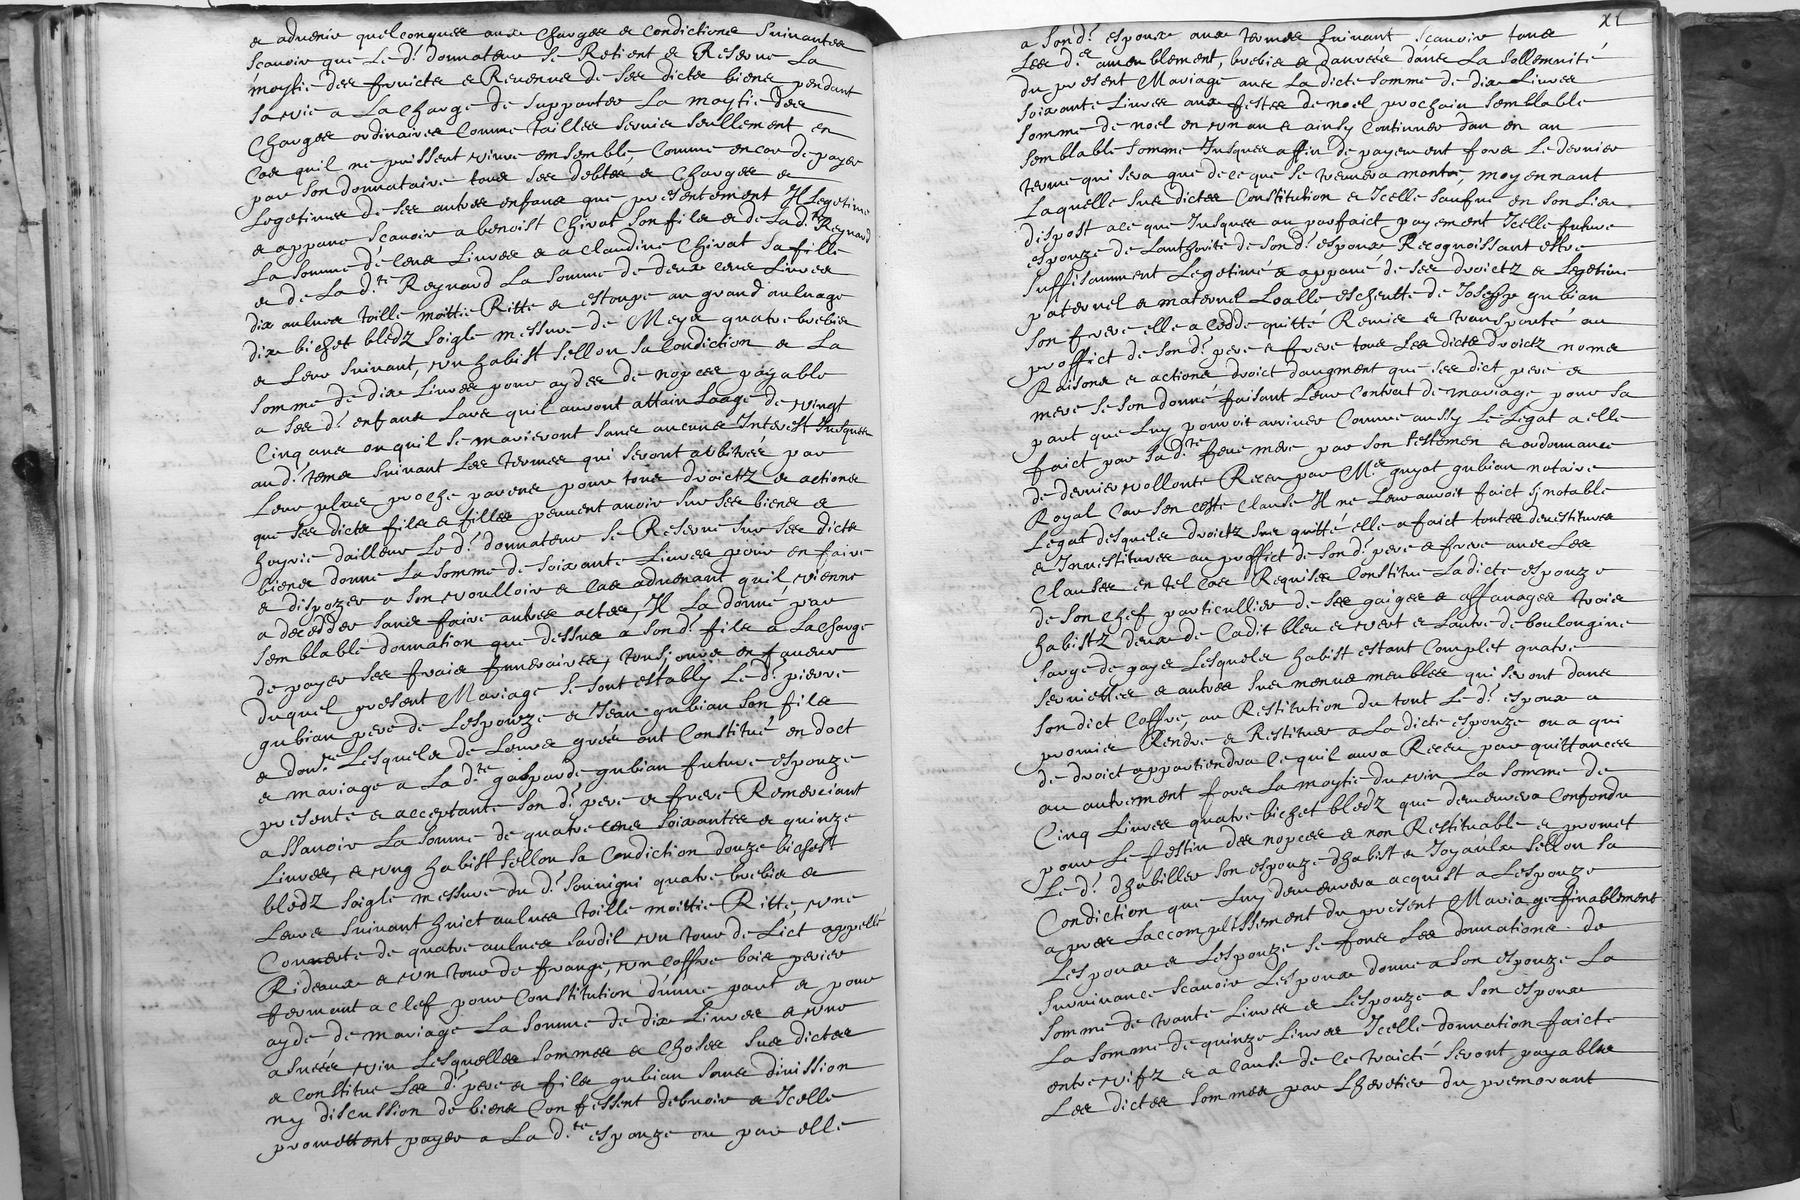 & advenir quelconques aux charges & condictions suivantes
scavoir que le d.t donnateur se Retient & Reserve la
moytie des fruictz & Revenus de ses dictz biens pendant
sa vie a la charge de supporter la moytie des
charges ordinaires comme tailles servis seullement en
cas quil ne puissent vivre ensemble, comme encor de payer
par son donnataire tous ses debtes & charges &
Legetimes de ses autres enfans que presentement Il Legetime
& appane scavoir a benoist Chirat son filz & de lad.te Reynard
la somme de cens Livres & a Claudine Chirat sa fille
& de La d.te Reynard La somme de deux cens Livres
dix aulnes toille moittie Ritte & estoupe au grand aulnage
dix bichet bledz soigle messure de Meys quatre brebis
& Leur suivant, un habist sellon sa Condiction & La
somme de dix Livres pour aydes de nopces payable
a ses d.t enfans Lors quil auront attain Laage de vingt
Cinq ans ou quil se marieront sans aucuns Interest Jusques
aud.t tems suivant Les termes qui seront arbitrés par
Leur plus proche parens pour tous droictz & actions
que ses dictz filz & filles peuvent avoir sur ses biens &
hoyrie dailleur Le d.t donnateur se Reserve sur ses dictz
biens donné La somme de soixante Livres pour en faire
& dispozer a son voulloir & cas advenant quil vienne
a decedder sans faire autres actes, Il La donné par
semblable donnation que dessus a son d.t filz a La charge
de payer ses frais funeraires, tousjours en faveur
duquel present Mariage se sont estably Le d.t pierre
gubian pere de Lespouze & Jean gubian son filz
& don.re Lesquelz de Leurs grées ont Constitué en doct
& mariage a La d.te gasparde gubian future espouze
presente & acceptante son d.t pere & frere Remerciant
assavoir La somme de quatre cens soixantes & quinze
Livres, & ung habist sellon sa Condiction douze bichest
bledz soigle messure du d.t souvigni quatre brebis &
Leurs suivant huict aulnes toille moittie Ritte, une
Couverte de quatre aulnes sardil un tour de Lict appellé
Rideaux & un tour de frange, un coffre bois perier
fermant a clef pour Constitution d'une part & pour
ayde de mariage La somme de dix Livres & une
asnéés vin Lesquelles sommes & choses sus dictes
& Constitue Les d.t pere & filz gubian sans division
ny discussion de biens Confessent debvoir & Icelle
promettent payer a La d.te espouze ou par elle
XL
a son d.t espoux aux termes suivant scavoir tous
Les d.ts ameublement, brebis & danrées dans La sollemnité
du present Mariage avec La dicte somme de dix Livres
soixante Livres aux festes de noel prochain semblable
somme de noel en un an & ainsy continuer dan en an
semblable somme Jusques affin de payement fors Le dernier
terme qui sera que de ce que se treuvera monter, moyennant
Laquelle sus dictes Constitution & Icelle saufue en son Lieu
dispost ale que Jusques au parfaict payement Icelle future
espouze de Lauthorité de son d.t espoux Recognoissant estre
suffisamment Legetimé & appané de ses droictz & Legetime
paternel & maternel Loalle escheutte de Joseppe gubian
son frere elle a cedde quitté Remis & transporté au
proffict de son d.t pere & frere tous Les dictz droictz noms
Raisons & actions droict daugment que ses dict pere &
mere se son donné faisant Leur Contract de mariage pour sa
part que Luy pouvoit arriver Comme aussy Le Legat a elle
faict par sa d.te feue mere par son testemen & ordonnance
de dernier vollonte Receu par M.e guyot gubian notaire
Royal Car sen ceste clause Il ne Leur auroit faict sy notable
Legat desquelz droictz sus quitté elle a faict touttes devestitures
& Investitures au proffict de son d.t pere & frere avec Les
clauses en tel cas Requises Constitue La dicte espouze
de son chef particullier de ses gaiges & affanages trois
habistz deux de Cadit bleu & vert & Lautre de boulongine
sarge de gays Lesquelz habist estant Complet quatre
serviettes & autres sus menus meubles qui seront dans
son dict Coffre, au Restitution du tout Le d.t espoux a
promis Rendre & Restituer a La dicte espouze ou a qui
de droict appartiendra ce quil aura Receu par quittances
au autrement fors La moytie du vin La somme de
Cinq Livres quatre bichet bledz que demeurera Confondu
pour Le festin des nopces & non Restituable & promet
Le d.t dhabiller son espouze dhabist & Joyaulx sellon sa
Condiction que Luy demeurera acquist a Lespouze
apres Laccomplissement du present Mariage finablement
Lespoux & Lespouze se fons Les donnations de
survivance scavoir Lespoux donne a son espouze La
somme de trante Livres & Lespouze a son espoux
La somme de quinze Livres Icelle donnation faicte
entre vifz & a Cause de ce traicté seront payables
Les dictes sommes par Lheretier du premorant